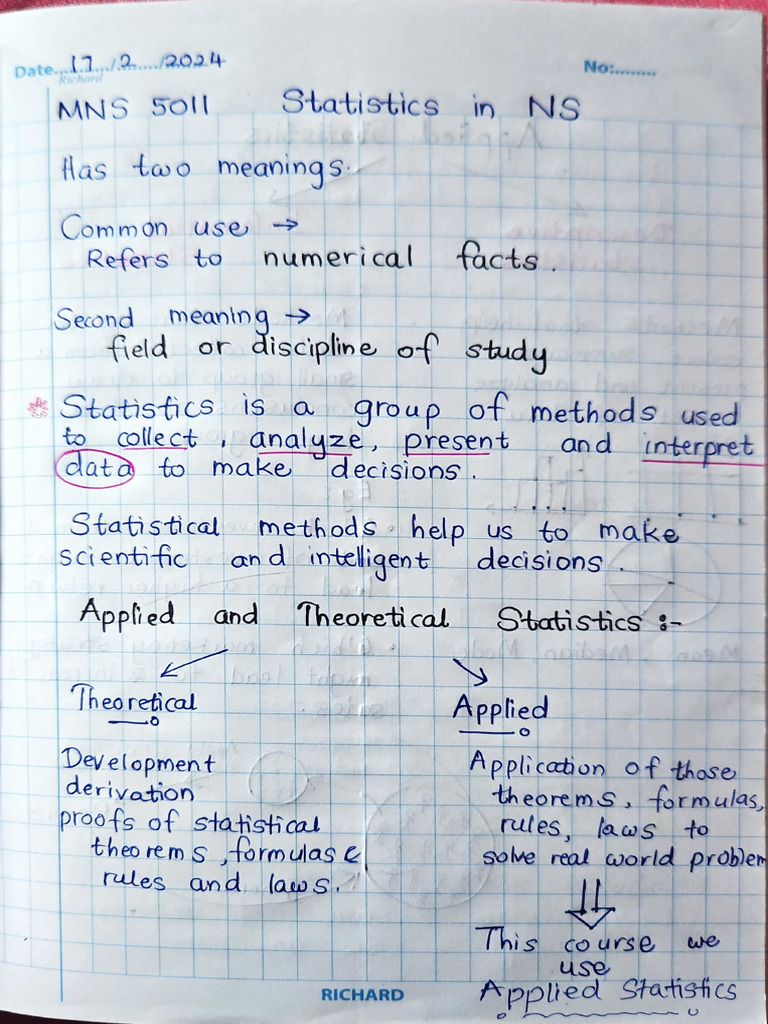 Date...17.../..2...../..2024
Richard
No:........
MNS 5011 Statistics in NS
Has two meanings.
Common use →
Refers to numerical facts.
Second meaning →
field or discipline of study
* Statistics is a group of methods used
to collect, analyze, present and interpret
data to make decisions.
Statistical methods help us to make
scientific and intelligent decisions.
Applied and Theoretical Statistics :-
Theoretical
Development
derivation
proofs of statistical
theorems, formulas
rules and laws.
Applied
Application of those
theorems, formulas,
rules, laws to
solve real world problem
This course we
use
Applied Statistics
RICHARD